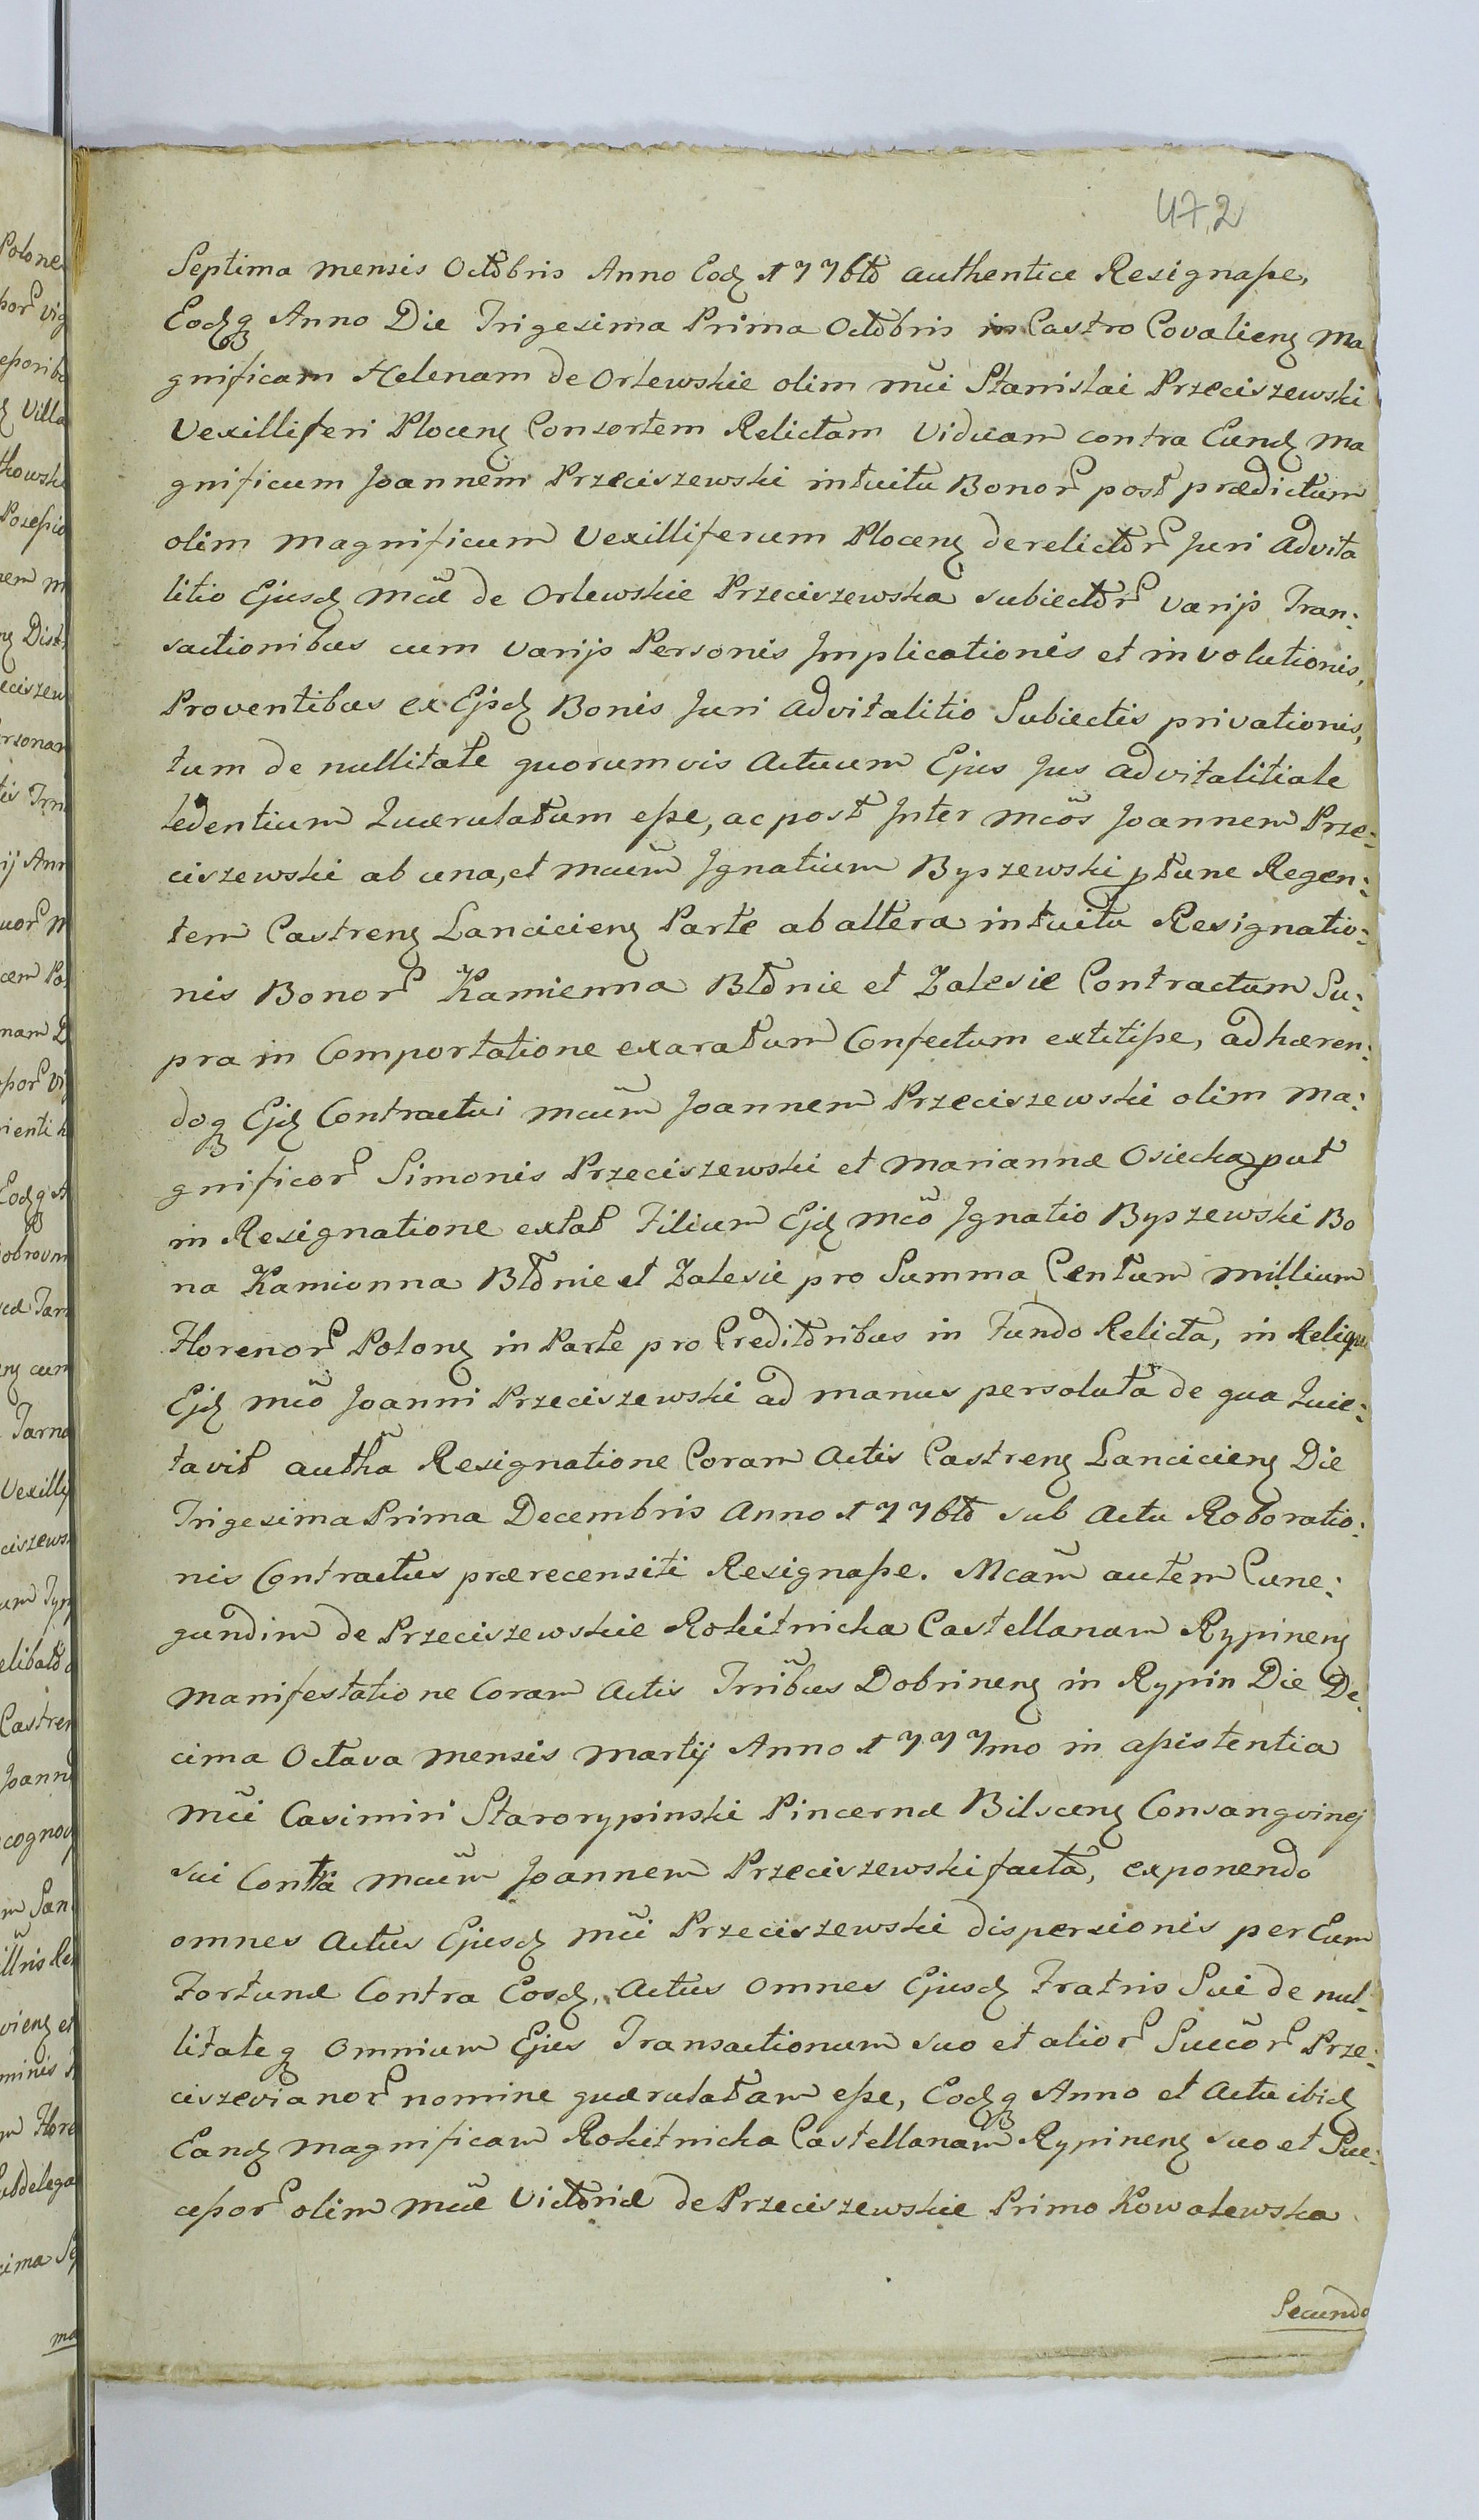 472
Septima mensis Octobris Anno Eodz 1776to authentice Resignasse,
Eodzq Anno Die Trigesima Prima Octobris in Castro Covalienz Ma
gnificam Helenam de Orlewskie olim mci Stanislai Przeciszewski
Vexilliferi Plocenz Consortem Relictam Viduam contra Eundz Ma
gnificum Joannem Przeciszewski intuitu Bonor post prædictum
olim Magnificum Vexilliferum Plocenz derelictor Juri Advita
litio Ejusdz mcæ de Orlewskie Przeciszewska subiector varijs Tran:
sactionibus cum varijs Personis Implicationis et involutionis,
Proventibus ex Ejsdz Bonis Juri Advitalitio Subiectis privationis,
tum de nullitate quorumvis Actuum Ejus Jus advitalitiale
ledentium Quærulatum esse, ac post Inter mcos Joannem Prze:
ciszewski ab una, et mcum Ignatium Byszewski ptunc Regen:
tem Castrenz Lancicienz Parte ab altera intuitu Resignatio:
nis Bonor Kamienna Btonie et Zalesie Contractum Su:
pra in Comportatione exaratum Confectum extitisse, adhæren:
doq Ejdz Contractui mcum Joannem Przeciszewski olim Ma:
gnificor Simonis Przeciszewski et Mariannæ Osiecka put
in Resignatione extat Filium Ejdz mco Ignatio Byszewski Bo
na Kamionna Btonie et Zalesie pro Summa Centum millium
Florenor Polonz in Parte pro Creditoribus in Fundo Relicta, in Reliqu
Ejdz mco Joanni Przeciszewski ad manus persoluta de qua Quie:
tavit autha Resignatione Coram Actis Castrenz Lancicienz Die
Trigesima Prima Decembris Anno 1776to sub Actu Roboratio:
nis Contractus prærecensiti Resignasse. Mcam autem Cune:
gundim de Przeciszewskie Rokitnicka Castellanam Rypinenz
manifestatione Coram Actis Trribus Dobrinenz in Rypin Die De:
cima Octava mensis Martij Anno 1777mo in assistentia
mci Casimiri Starorypinski Pincernæ Bilscenz Consangvinej
sui Contra mcum Joannem Przeciszewski facta, exponendo
omnes Actus Ejusdz mci Przeciszewski dispersionis per Eum
Fortunæ Contra Eosdz, Actus omnes Ejusdz Fratris Sui de nul-
litateq omnium Ejus Transactionum suo et alior Succor Prze:
ciszevianor nomine quærulatam esse, Eodzq Anno et Actu ibidz
Eandz Magnificam Rokitnicka Castellanam Rypinenz suo et Suc:
cessor olim mcæ Victoriæ de Przeciszewskie Primo Kowalewska
Secundo